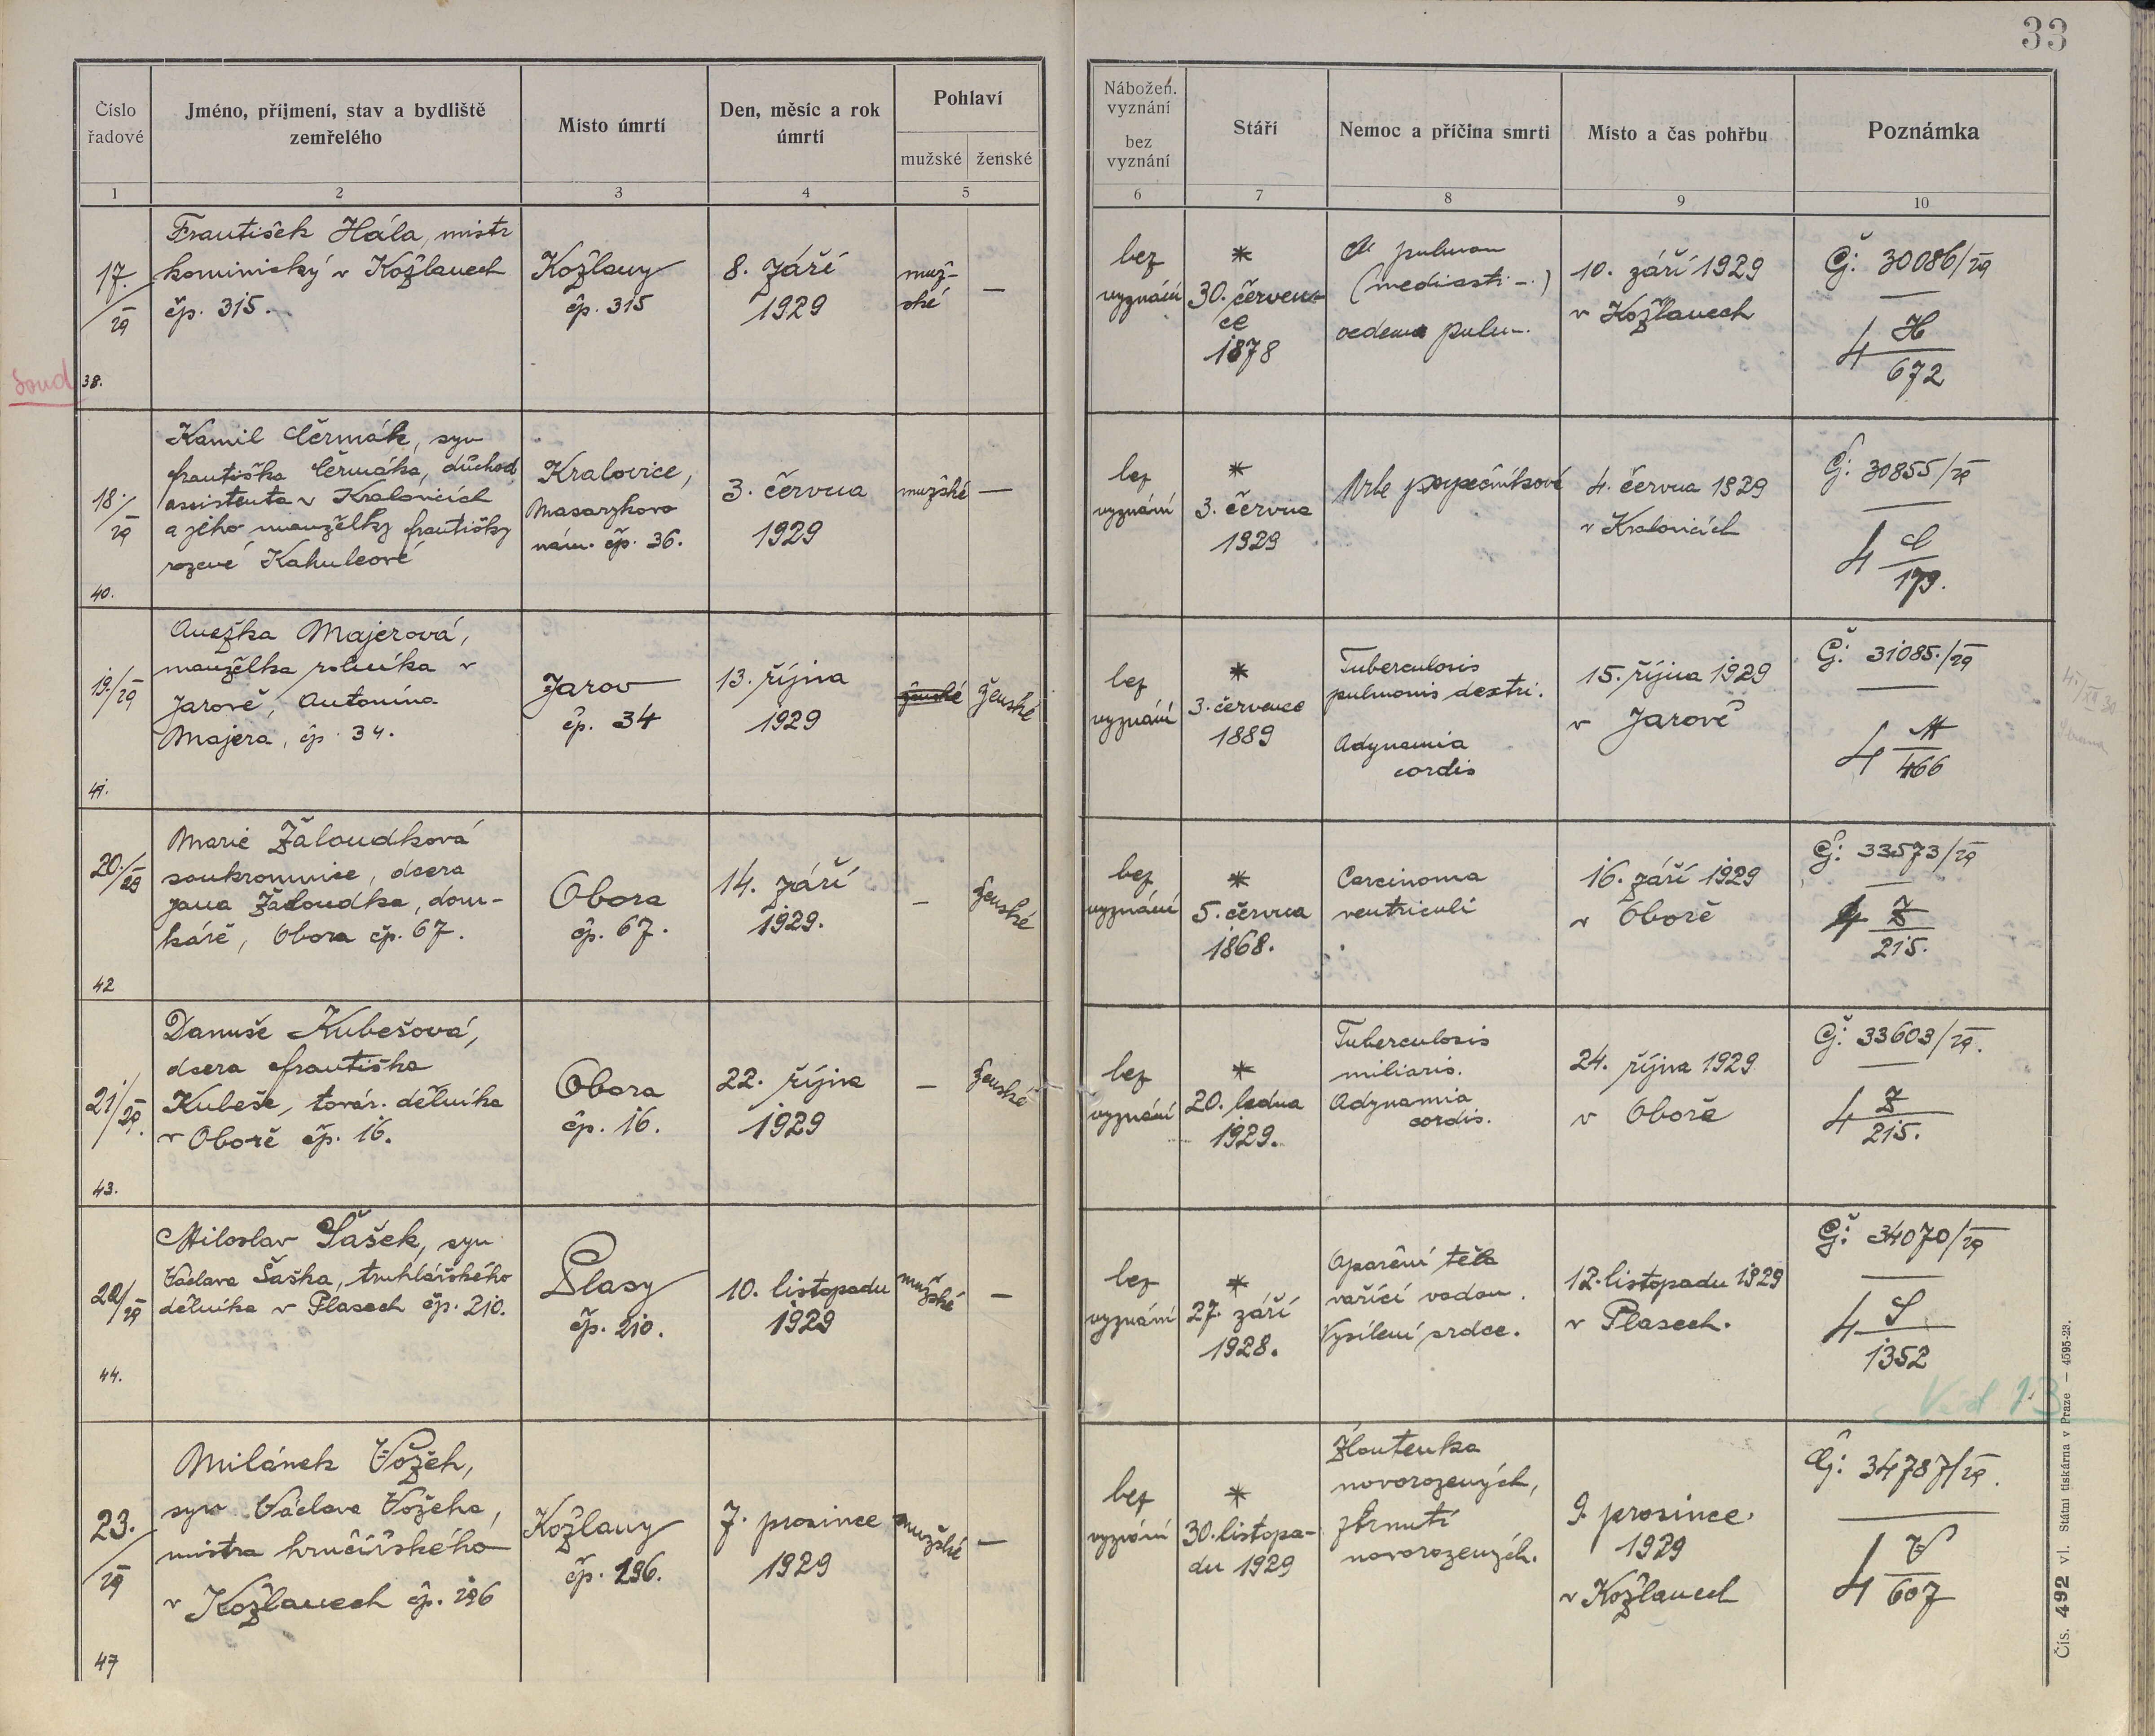 33
Číslo
řadové
Jméno, příjmení, stav a bydliště
zemřelého
Místo úmrtí
Den, měsíc a rok
úmrtí
Pohlaví
mužské ženské
Nábožen.
vyznání
bez
vyznání
Stáří
Nemoc a příčina smrti
Místo a čas pohřbu
Poznámka
1 2 3 4 5 6 7 8 9 10
Soud
17./29
38.
František Hála, mistr
kominický v Kožlanech
čp. 315.
Kožlany
čp. 315
8. září
1929
muž-
ské
—
bez
vyznání
*
30. červen-
ce
1878
pulmon
(mediasti-.)
oedema pulm.
10. září 1929
v Kožlanech
Č: 30086/29
4 H
672
18./29
40.
Kamil Čermák, syn
Františka Čermáka, důchod.
assistenta v Kralovicích
a jeho manželky Františky
rozené Kahuleové
Kralovice,
Masarykovo
nám. čp. 36.
3. června
1929
mužské
—
bez
vyznání
*
3. června
1929
4. června 1929
v Kralovicích
Č: 30855/29
4 Č
179.
19./29
41.
Anežka Majerová,
manželka rolníka v
Jarově, Antonína
Majera, čp. 34.
Jarov
čp. 34
13. října
1929
ženské
ženské
bez
vyznání
*
3. července
1889
Tuberculosis
pulmonis dextri.
Adynamia
cordis
15. října 1929
v Jarově
Č: 31085./29
4 M
466
20./29
42
Marie Žáloudková
soukromnice, dcera
Jana Žáloudka, dom-
káře, Obora čp. 67.
Obora
čp. 67.
14. září
1929.
—
ženské
bez
vyznání
*
5. června
1868.
Carcinoma
ventriculi
16. září 1929
v Oboře
Č: 33573/29
4 Z
215.
21/29.
43.
Danuše Kubešová,
dcera Františka
Kubeše, továr. dělníka
v Oboře čp. 16.
Obora
čp. 16.
22. října
1929
—
ženské
bez
vyznání
*
20. ledna
1929.
Tuberculosis
miliaris.
Adynamia
cordis.
24. října 1929
v Obořa
Č: 33603/29.
4 Z
215.
22/29
44.
Miloslav Šašek, syn
Václava Šaška, truhlářského
dělníka v Plasech čp. 210.
Plasy
čp. 210.
10. listopadu
1929
mužské
—
bez
vyznání
*
27. září
1928.
Opaření těla
vařící vodou.
Vysílení srdce.
12. listopadu 1929
v Plasech.
Č: 34070/29
4 S
1352
23./29
47
Milánek Vožeh,
syn Václava Vožeha,
mistra hrnčířského
v Kožlanech čp. 296
Kožlany
čp. 296.
7. prosince
1929
mužské
—
bez
vyznání
*
30. listopa-
du 1929
Žloutenka
novorozených,
ztrnutí
novorozených.
9. prosince
1929
v Kožlanech
Č: 34787/29.
4 V
607
Čís. 492 vl. Státní tiskárna v Praze — 4595-23.